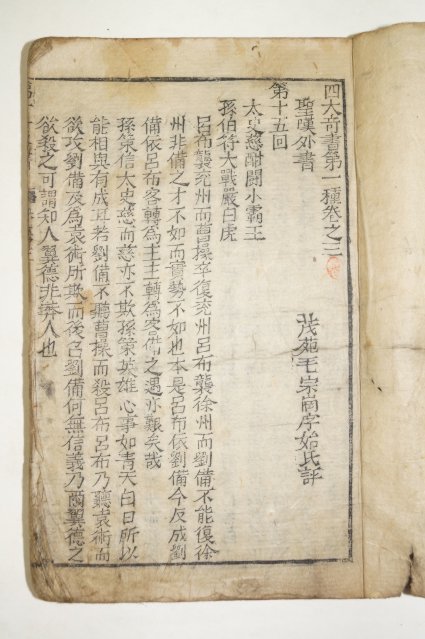 四大奇書第一種卷之三
聖嘆外書
茂苑毛宗崗序始氏評
第十五回
太史慈酣鬪小霸王
孫伯符大戰嚴白虎
呂布襲兗州而曹操卒復兗州呂布襲徐州而劉備不能復徐
州非備之才不如而實勢不如也本是呂布依劉備今反成劉
備依呂布客轉為主主轉為客備之遇亦艱矣哉
孫策信太史慈而慈亦不欺孫策英雄心事如青天白日所以
能相與有成耳若劉備不聽曹操而殺呂布呂布乃聽袁術而
欲攻劉備及為袁術所欺而後召劉備何無信義乃爾翼德之
欲殺之可謂知人翼德非莽人也